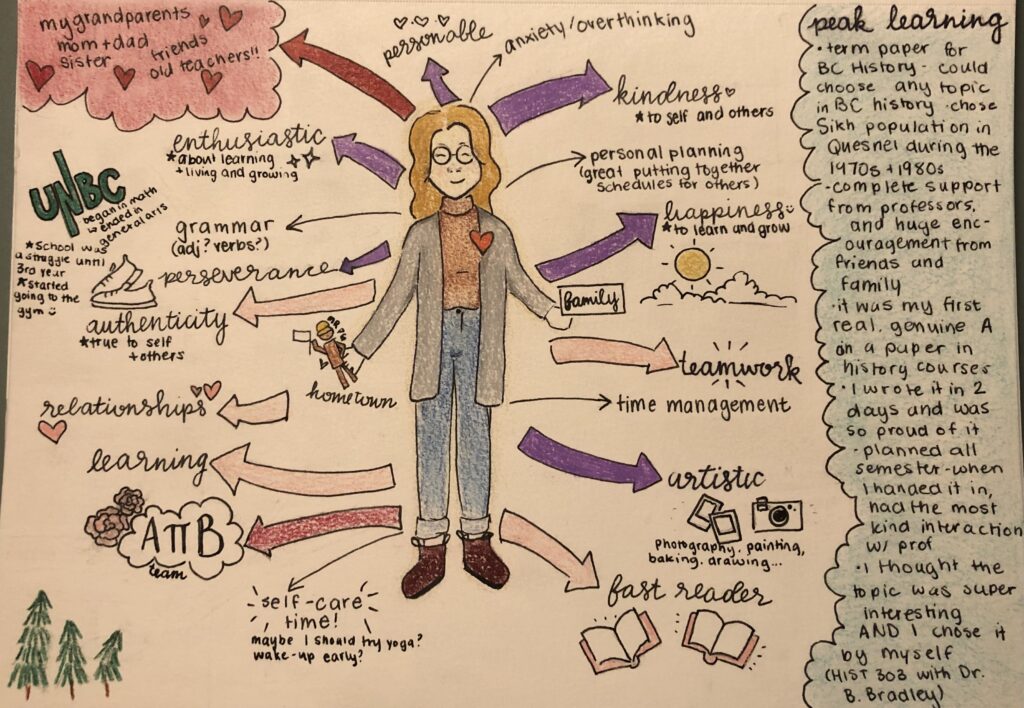 my grandparents
mom + dad
sister friends
old teachers!!
personable
anxiety/overthinking
kindness
*to self and others
enthusiastic
*about learning
+ living and growing
personal planning
(great putting together
schedules for others)
UNBC
began in math
↳ ended in
general arts
grammar
(adj? verbs?)
happiness
*to learn and grow
*School was
a struggle until
3rd year
*started
going to the
gym
perseverance
family
authenticity
*true to self
+ others
MR PG
hometown
teamwork
relationships
time management
learning
artistic
photography, painting,
baking, drawing...
AΠB
team
self-care
time!
maybe I should try yoga?
wake-up early?
fast reader
peak learning
• term paper for
BC History - could
choose any topic
in BC history - chose
Sikh population in
Quesnel during the
1970s + 1980s
• complete support
from professors,
and huge enc-
ouragement from
friends and
family
• it was my first
real, genuine A
on a paper in
history courses
• I wrote it in 2
days and was
so proud of it
- planned all
semester - when
I handed it in,
had the most
kind interaction
w/ prof
• I thought the
topic was super
interesting
AND I chose it
by myself
(HIST 303 with Dr.
B. Bradley)